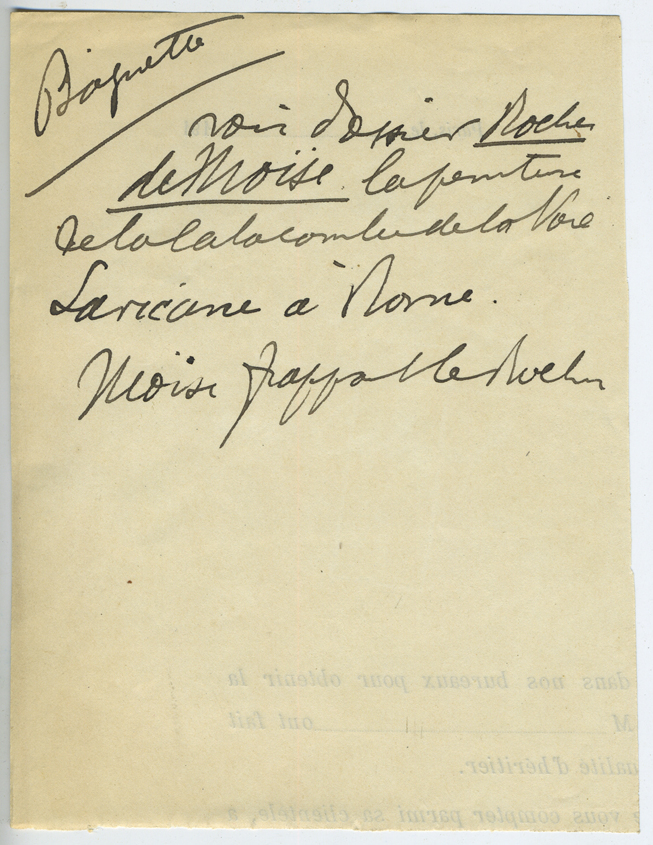 Baguette
voir dossier Roche
de Moïse. la peinture
de la Catacombe de la Voie
Lavicane à Rome.
Moïse frappant le Rocher
dans nos bureaux pour obtenir la
M. ont fait
ualité d'héritier.
vous compter parmi sa clientèle, a